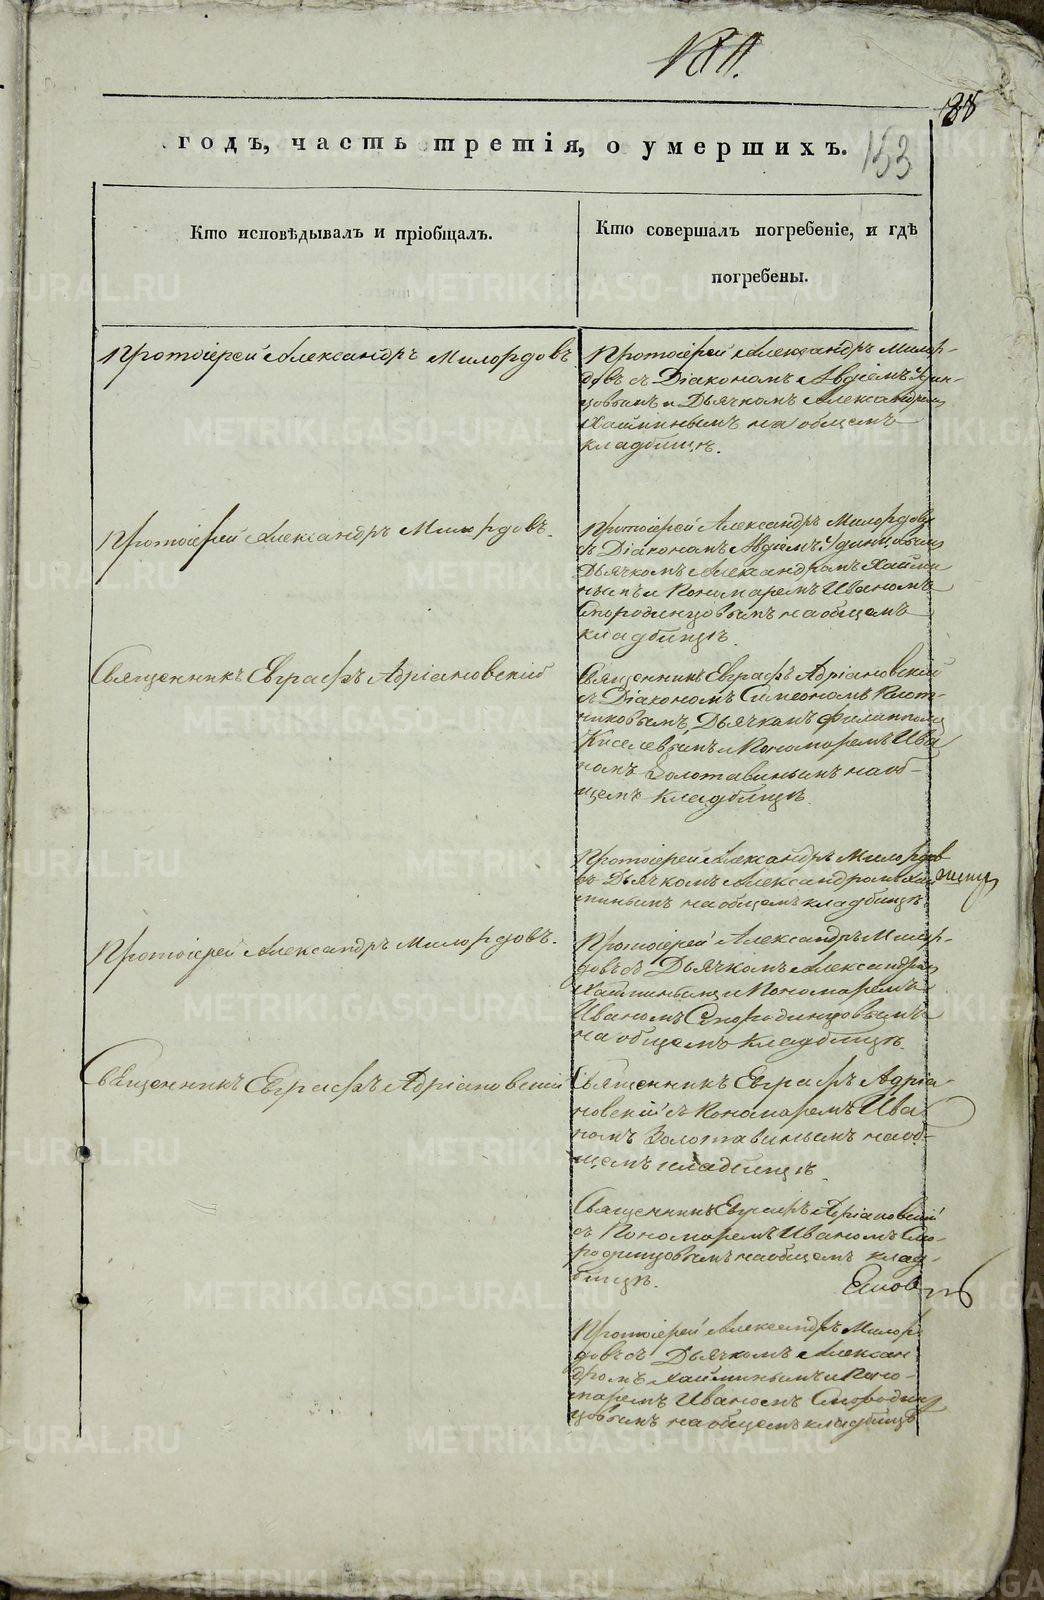 188
153
годъ, часть третія, о умершихъ.
Кто исповѣдывалъ и пріобщалъ.
Кто совершалъ погребеніе, и гдѣ
погребены.
Протоіерей Александръ Милордовъ
Протоіерей Александръ Милор-
довъ съ Діакономъ Авдіемъ Удин-
цовымъ и Дьячкомъ Александромъ
Хайминымъ на общемъ
кладбищѣ.
Протоіерей Александръ Милордовъ.
Протоіерей Александръ Милордовъ
съ Діакономъ Авдіемъ Удинцовымъ
Дьячкомъ Александромъ Хайми
нымъ и Пономаремъ Иваномъ
Смородинцовымъ на общемъ
кладбищѣ.
Священникъ Евграфъ Адріановскій
Священникъ Евграфъ Адріановскій
съ Діакономъ Симеономъ Плот-
никовымъ, Дьячкомъ Филиппомъ
Киселевымъ и Пономаремъ Ива
номъ Золотавинымъ на об-
щемъ кладбищѣ.
Протоіерей Александръ Милордов
съ Дьячкомъ Александромъ Хай
минымъ на общемъ кладбищѣ.
Протоіерей Александръ Милордовъ.
Протоіерей Александръ Милор-
довъ съ Дьячкомъ Александромъ
Хайминымъ и Пономаремъ
Иваномъ Смородинцовымъ
на общемъ кладбищѣ.
Священникъ Евграфъ Адріановскій
Священникъ Евграфъ Адріа-
новскій съ Пономаремъ Ива
номъ Золотавинымъ на об-
щемъ кладбищѣ.
Священникъ Евграфъ Адріановскій
съ Пономаремъ Иваномъ Смо-
родинцовымъ на общемъ клад-
бищѣ.
Протоіерей Александръ Милор
довъ съ Дьячкомъ Алексан
дромъ Хайминымъ и Поно-
маремъ Иваномъ Смородин
цовымъ на общемъ кладбищѣ
METRIKI.GASO-URAL.RU